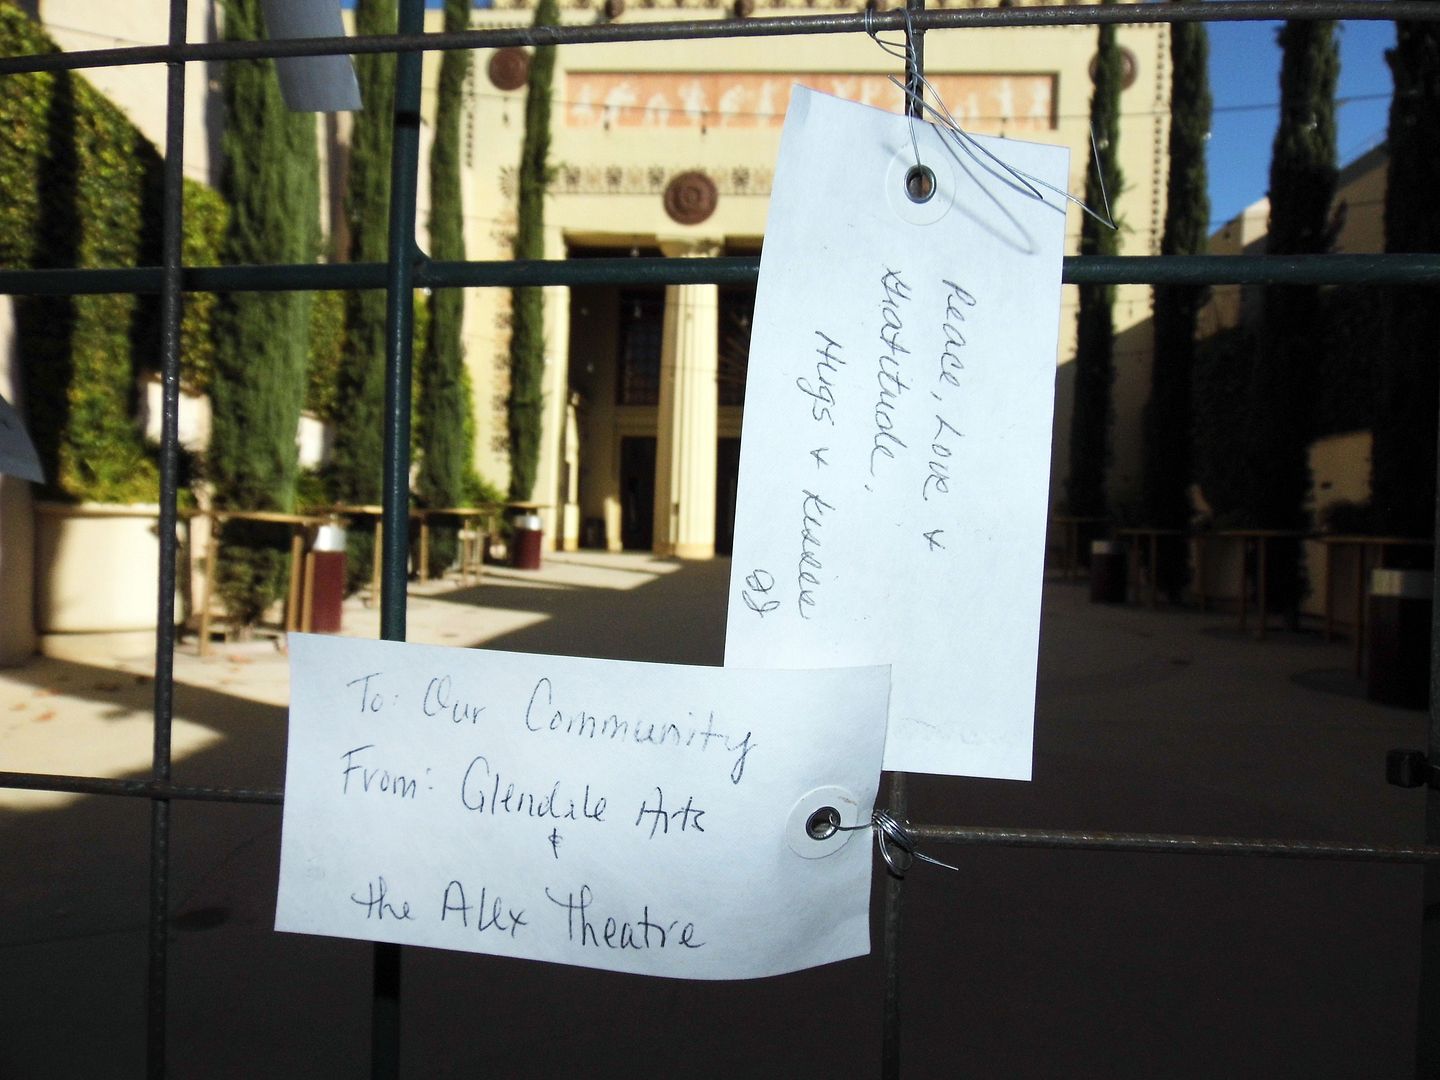 Peace, Love &
Gratitude,
Hugs & Kisses
To: Our Community
From: Glendale Arts
&
the Alex Theatre